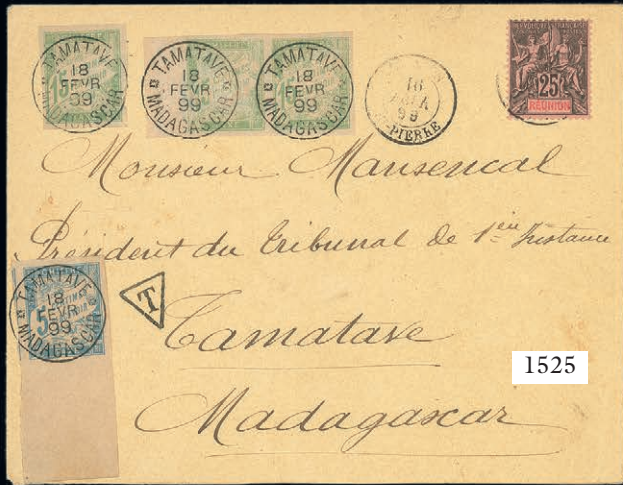 TAMATAVE
18
FEVR
99
MADAGASCAR
15
TAMATAVE
18
FEVR
99
MADAGASCAR
TAMATAVE
18
FEVR
99
MADAGASCAR
16
99
ST PIERRE
25
RÉUNION
Monsieur Mansencal
Président du Tribunal de 1ère Instance
TAMATAVE
18
FEVR
99
MADAGASCAR
5
T
Tamatave
1525
Madagascar